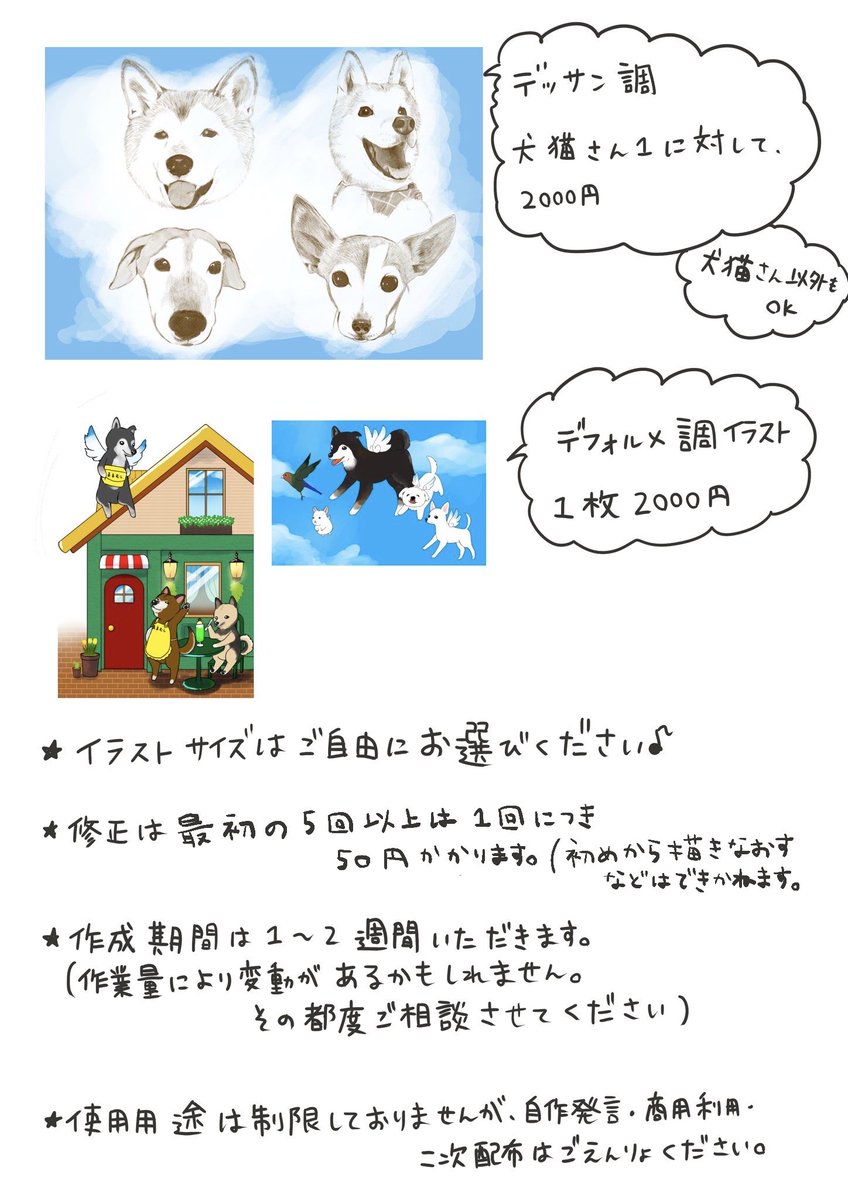 デッサン調
犬猫さん1に対して、
2000円
犬猫さん以外も
OK
デフォルメ調イラスト
1枚2000円
★イラストサイズはご自由にお選びください♪
★修正は最初の5回以上は1回につき
50円かかります。(初めから描きなおす
などはできかねます。
★作成期間は1〜2週間いただきます。
(作業量により変動があるかもしれません。
その都度ご相談させてください)
★使用用途は制限しておりませんが、自作発言・商用利用・
二次配布はごえんりょください。